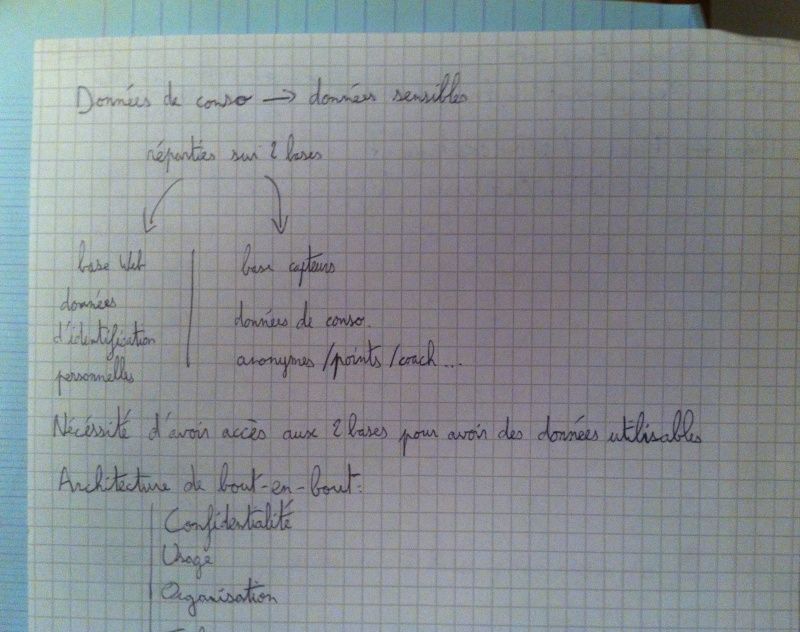 Données de conso → données sensibles
réparties sur 2 bases
base Web
données
d'identification
personnelles
base capteurs
données de conso.
anonymes / points / coach...
Nécéssité d'avoir accès aux 2 bases pour avoir des données utilisables
Architecture de bout-en-bout:
Confidentialité
Usage
Organisation